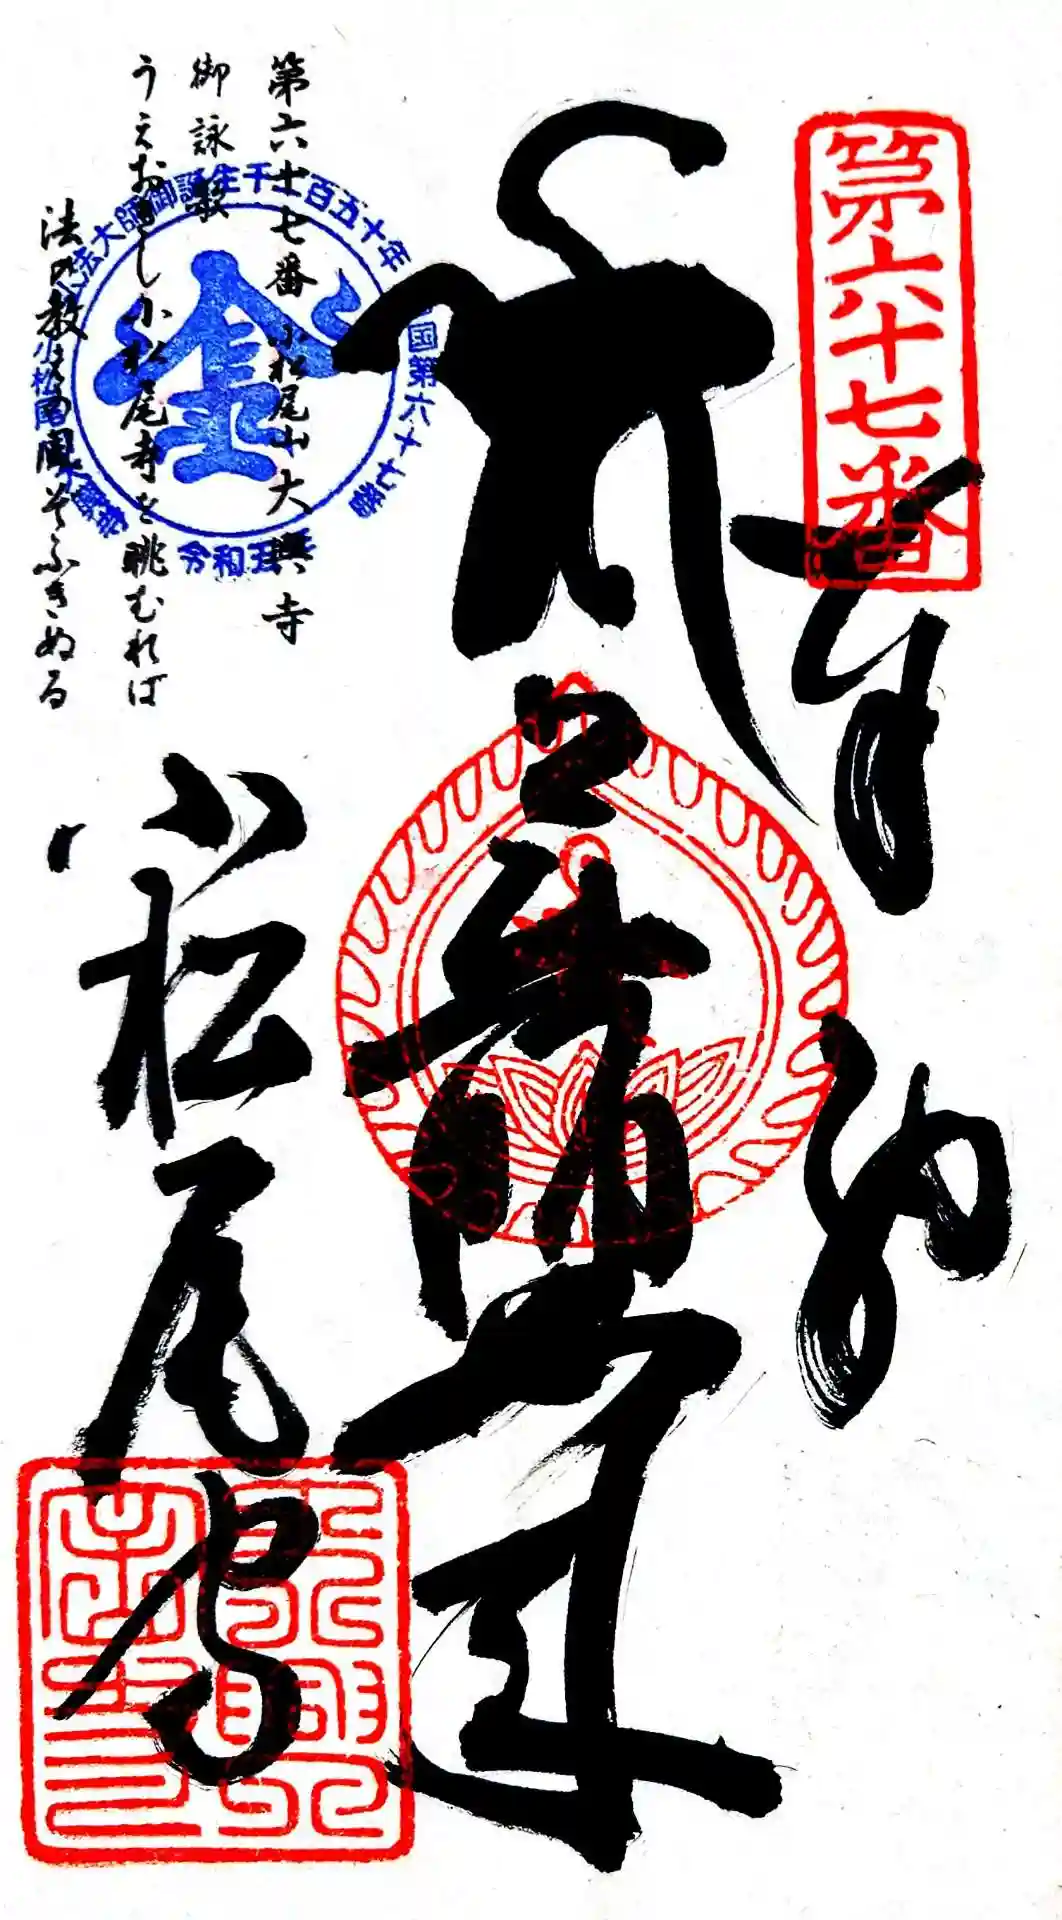 第六十七番
奉納
薬師如来
小松尾寺
第六十七番 小松尾山大興寺
御詠歌
うえおきし小松尾寺を眺むれば
法の教えの風ぞふきぬる
法大師御誕生千二百五十年
国第六十七番
令和五